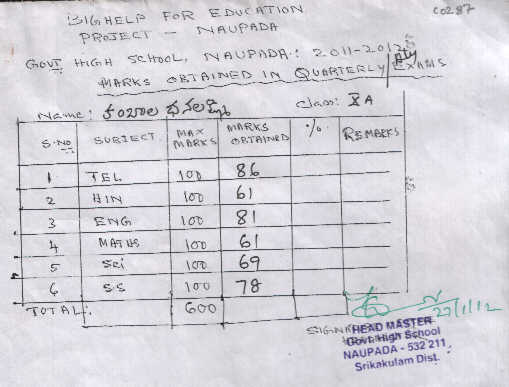 BIGHELP FOR EDUCATION C0287
PROJECT - NAUPADA
GOVT HIGH SCHOOL, NAUPADA: 2011-2012
MARKS OBTAINED IN QUARTERLY/ EXAMS
Name: కంబాల ధనలక్ష్మి Class: X A
S.No SUBJECT MAX MARKS MARKS OBTAINED % REMARKS
1 TEL 100 86
2 HIN 100 61
3 ENG 100 81
4 MATHS 100 61
5 Sci 100 69
6 S.S 100 78
TOTAL: 600
27/1/12
HEAD MASTER
Govt. High School
NAUPADA - 532 211,
Srikakulam Dist.